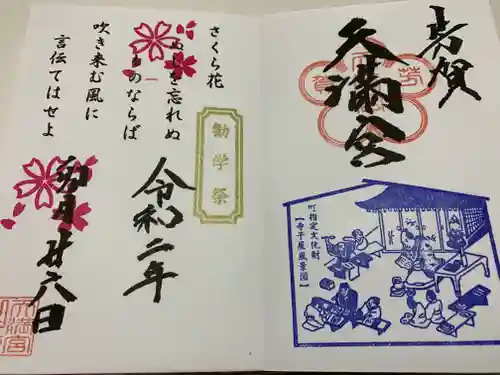 芳賀
天満宮
町指定文化財
【寺子屋風景図】
さくら花
ぬしを忘れぬ
ものならば
吹き来む風に
言伝てはせよ
勧学祭
令和二年
卯月廿八日